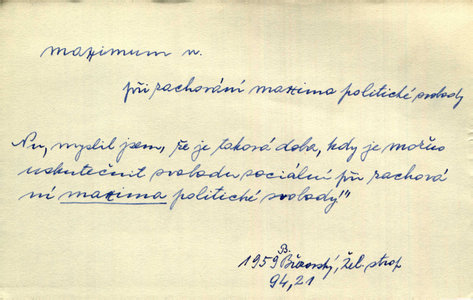 maximum n.
při zachování maxima politické svobody
„Nu, myslil jsem, že je taková doba, kdy je možno
uskutečnit svobodu sociální při zachová
ní maxima politické svobody!"
B.
1959 Březovský, Žel. strop
94, 21